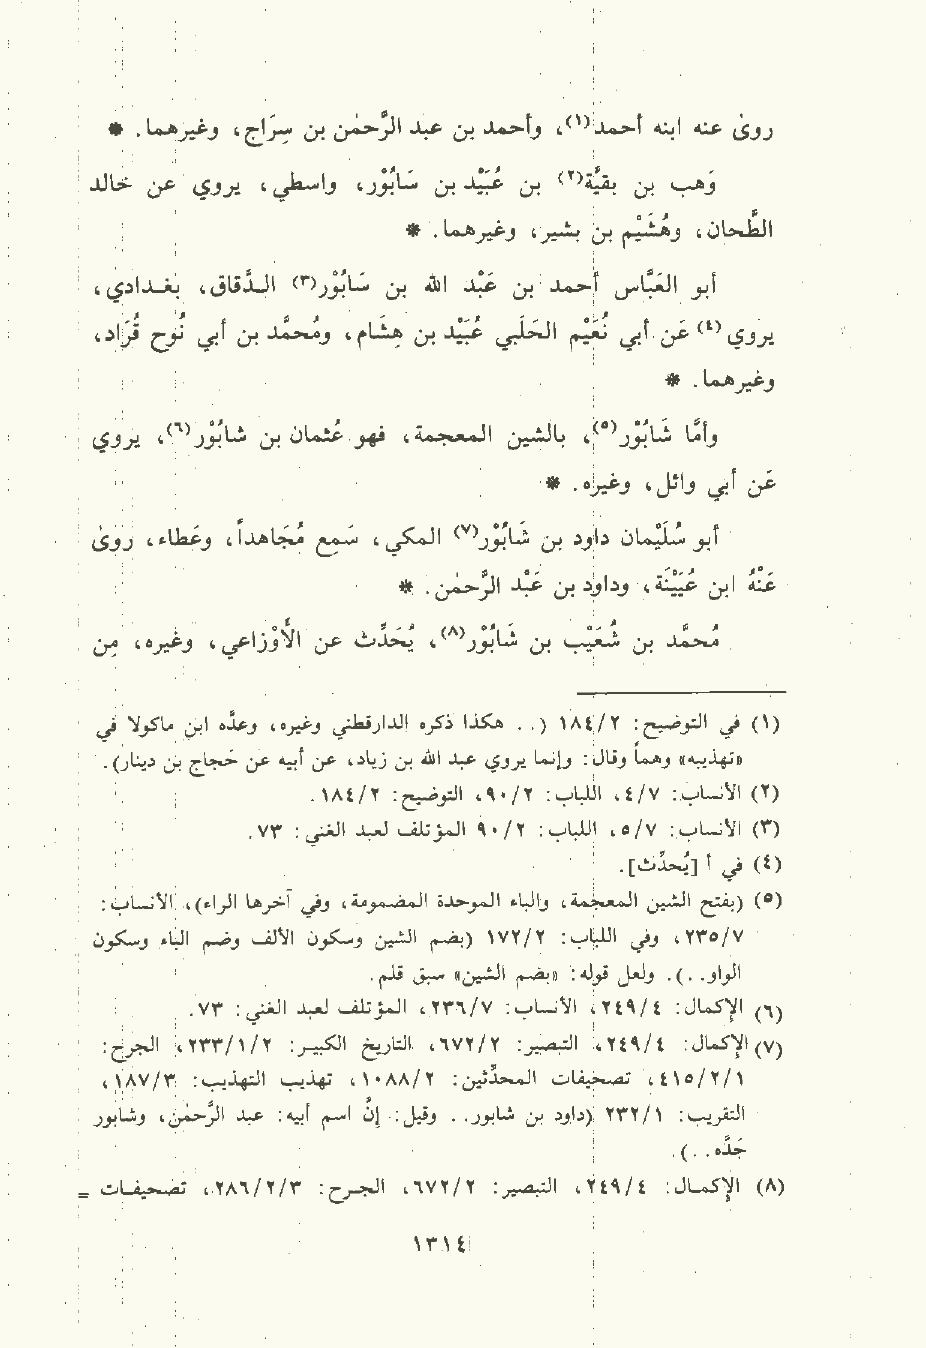 روىٰ عنه ابنه أحمد(١)، وأحمد بن عبد الرَّحمٰن بن سِرَاج، وغيرهما. *
وَهب بن بقيَّة(٢) بن عُبَيْد بن سَابُوْر، واسطي، يروي عن خالد
الطَّحان، وهُشَيْم بن بشير، وغيرهما. *
أبو العَبَّاس أحمد بن عَبْد الله بن سَابُوْر(٣) الـدَّقاق، بغـدادي،
يروي(٤) عَن أبي نُعَيْم الحَلَبي عُبَيْد بن هِشَام، ومُحمَّد بن أبي نُوح قُرَاد،
وغيرهما. *
وأمَّا شَابُوْر(٥)، بالشين المعجمة، فهو عُثمان بن شابُوْر(٦)، يروي
عَن أبي وائل، وغيره. *
أبو سُلَيْمان داود بن شَابُوْر(٧) المكي، سَمِع مُجَاهداً، وعَطاء، روىٰ
عَنْهُ ابن عُيَيْنَة، وداود بن عَبْد الرَّحمٰن. *
مُحمَّد بن شُعَيْب بن شَابُوْر(٨)، يُحَدِّث عن الأَوْزاعي، وغيره، مِن
(١) في التوضيح: ١٨٤/٢ (.. هكذا ذكره الدارقطني وغيره، وعدَّه ابن ماكولا في
«تهذيبه» وهماً وقال: وإنما يروي عبد الله بن زياد، عن أبيه عن حَجاج بن دينار).
(٢) الأنساب: ٤/٧، اللباب: ٩٠/٢، التوضيح: ١٨٤/٢.
(٣) الأنساب: ٥/٧، اللباب: ٩٠/٢ المؤتلف لعبد الغني: ٧٣.
(٤) في أ [يُحدِّث].
(٥) (بفتح الشين المعجمة، والباء الموحدة المضمومة، وفي آخرها الراء)، الأنساب:
٢٣٥/٧، وفي اللباب: ١٧٢/٢ (بضم الشين وسكون الألف وضم الباء وسكون
الواو..). ولعل قوله: «بضم الشين» سبق قلم.
(٦) الإكمال: ٢٤٩/٤، الأنساب: ٢٣٦/٧، المؤتلف لعبد الغني: ٧٣.
(٧) الإكمال: ٢٤٩/٤، التبصير: ٦٧٢/٢، التاريخ الكبير: ٢٣٣/١/٢، الجرح:
٤١٥/٢/١، تصحيفات المحدِّثين: ١٠٨٨/٢، تهذيب التهذيب: ١٨٧/٣،
التقريب: ٢٣٢/١ (داود بن شابور.. وقيل: إنَّ اسم أبيه: عبد الرَّحمٰن، وشابور
جَدَّه..).
(٨) الإكمال: ٢٤٩/٤، التبصير: ٦٧٢/٢، الجرح: ٢٨٦/٢/٣، تصحيفات =
١٣١٤